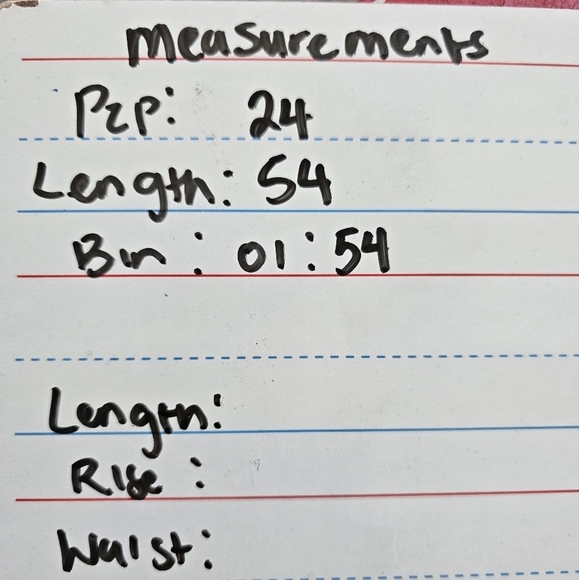 measurements
P2P: 24
Length: 54
Bin: 01:54
Length:
Rise:
Waist: